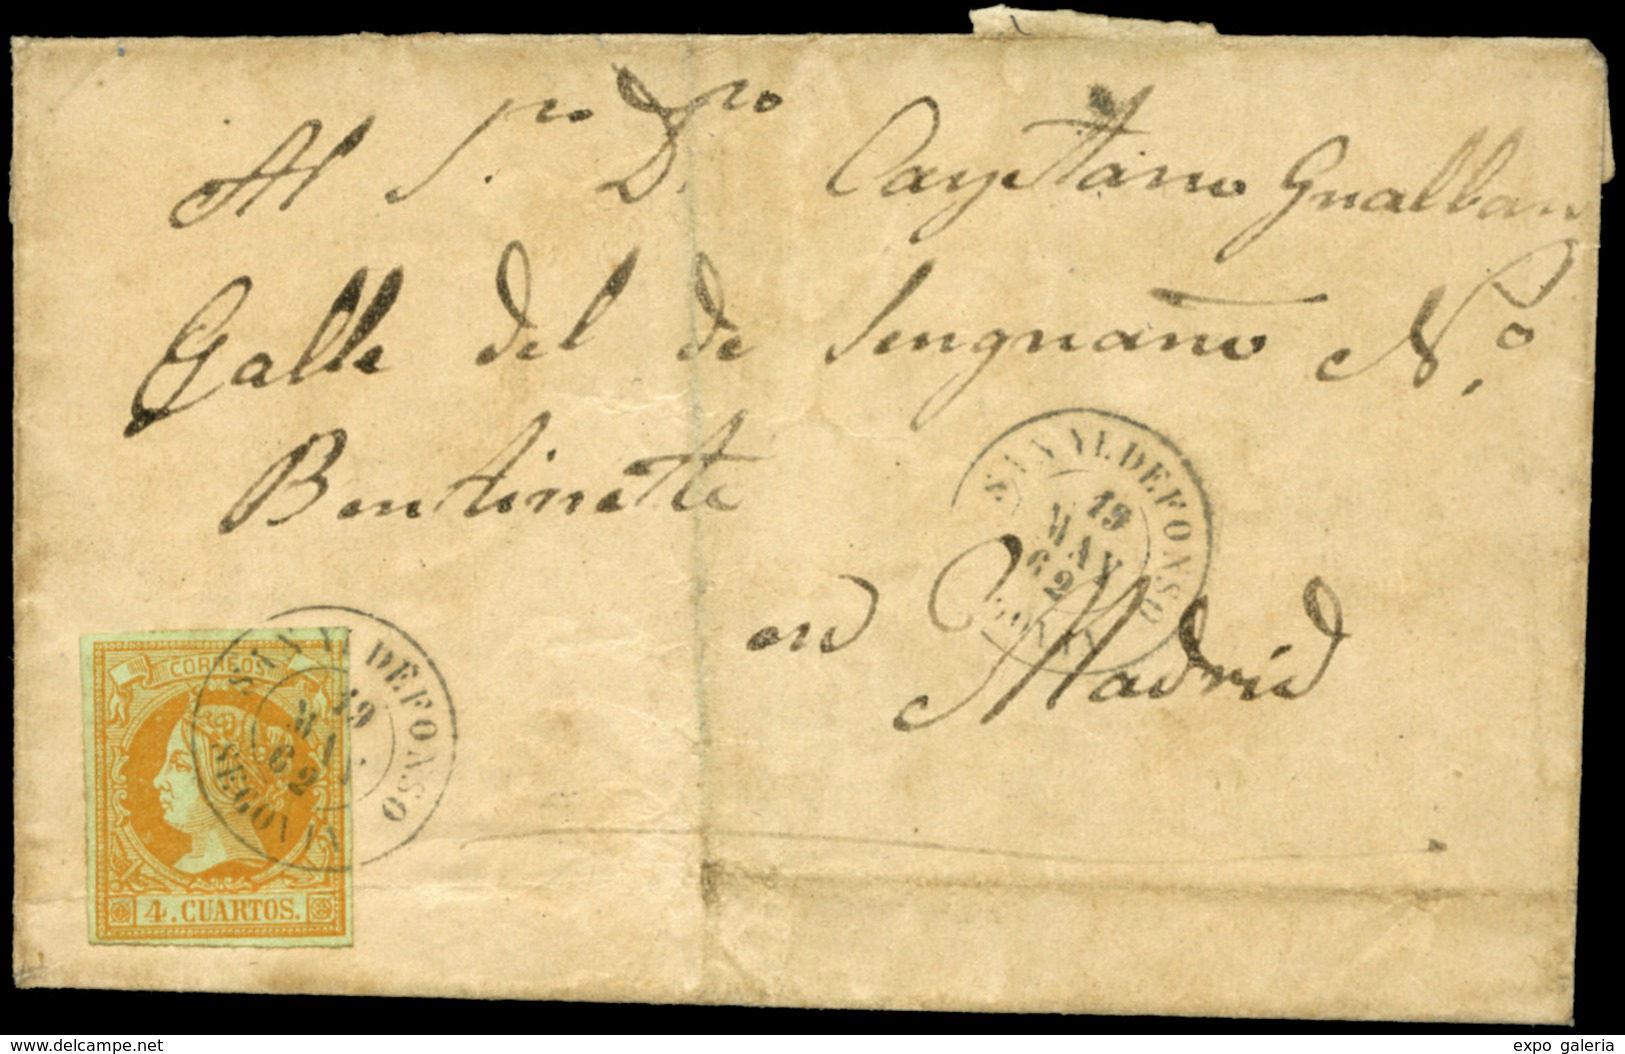 Al S.ro D.ro Cayetano Gualban
Galle del de sengnaño N.o
Bentinette
en Madrid
SAN YLDEFONSO
19
MAY
62
CORREOS
SAN YLDEFONSO
19
MAY.
62
SEGOVIA
4. CUARTOS.
www.delcampe.net
expo galeria